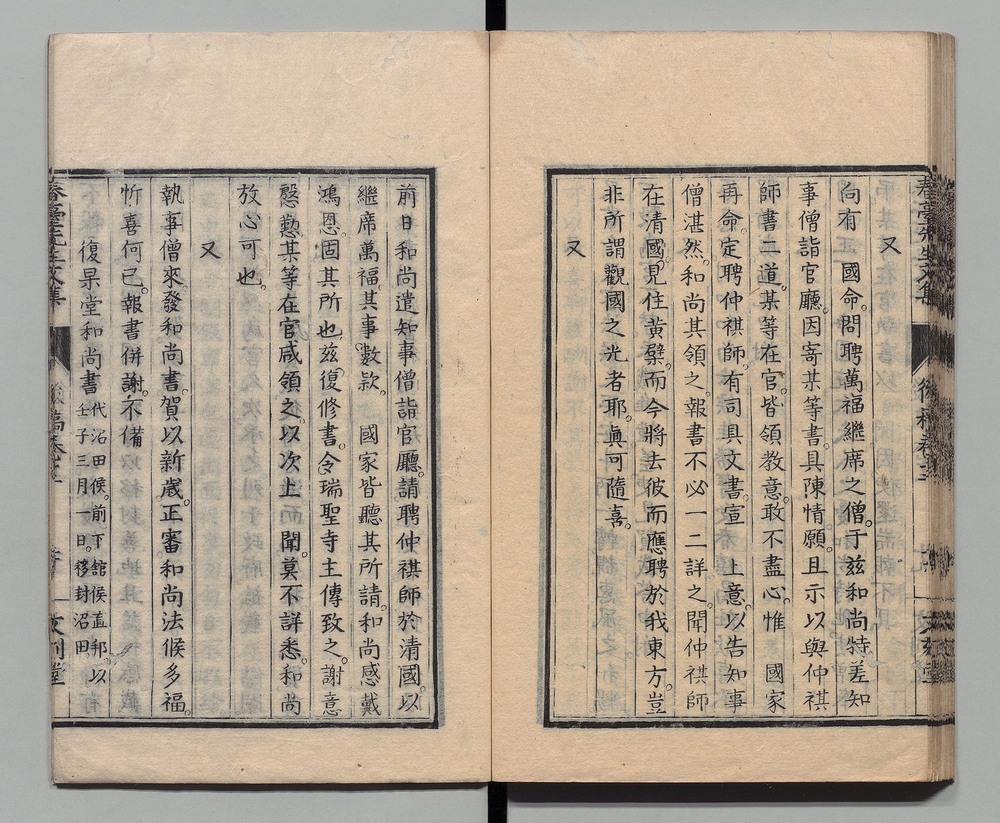 又
向有 國命問聘萬福繼席之僧于茲和尚特差知
事僧詣官廳因寄某等書具陳情願且示以與仲祺
師書二道某等在官皆領敎意敢不盡心惟 國家
再命定聘仲祺師有司具文書宣 上意以告知事
僧湛然和尚其領之報書不必一二詳之聞仲祺師
在清國見住黃檗而今將去彼而應聘於我東方豈
非所謂觀國之光者耶眞可隨喜
又
前日和尚遣知事僧詣官廳請聘仲祺師於清國以
繼席萬福其事數欵 國家皆聽其所請和尚感戴
鴻恩固其所也茲復修書令瑞聖寺主傳致之謝意
慇懃某等在官咸領之以次上聞莫不詳悉和尚
放心可也
又
執事僧來發和尚書賀以新歲正審和尚法候多福
忻喜何已報書併謝不備
復杲堂和尚書
代沼田侯前下館侯直邦以
壬子三月一日移封沼田
春臺先生文集
後稿卷十三